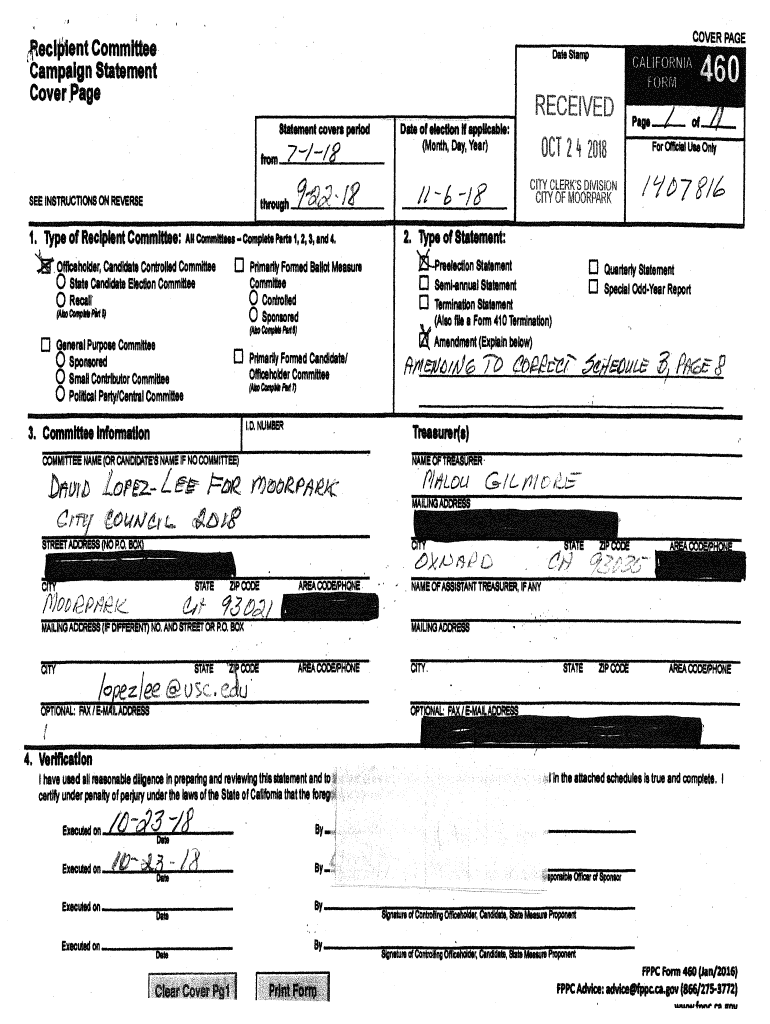 COVER PAGE
Recipient Committee
Campaign Statement
Cover Page
Date Stamp
CALIFORNIA FORM 460
RECEIVED
OCT 24 2018
CITY CLERK'S DIVISION
CITY OF MOORPARK
Page 1 of 11
For Official Use Only
1407816
Statement covers period
from 7-1-18
through 9-22-18
Date of election if applicable:
(Month, Day, Year)
11-6-18
SEE INSTRUCTIONS ON REVERSE
1. Type of Recipient Committee: All Committees – Complete Parts 1, 2, 3, and 4.
Officeholder, Candidate Controlled Committee
State Candidate Election Committee
Recall
(Also Complete Part 5)
General Purpose Committee
Sponsored
Small Contributor Committee
Political Party/Central Committee
Primarily Formed Ballot Measure
Committee
Controlled
Sponsored
(Also Complete Part 6)
Primarily Formed Candidate/
Officeholder Committee
(Also Complete Part 7)
2. Type of Statement:
Preelection Statement
Semi-annual Statement
Termination Statement
(Also file a Form 410 Termination)
Amendment (Explain below)
Quarterly Statement
Special Odd-Year Report
AMENDING TO CORRECT SCHEDULE B, PAGE 8
3. Committee Information
I.D. NUMBER
COMMITTEE NAME (OR CANDIDATE'S NAME IF NO COMMITTEE)
DAVID LOPEZ-LEE FOR MOORPARK
CITY COUNCIL 2018
STREET ADDRESS (NO P.O. BOX)
CITY STATE ZIP CODE AREA CODE/PHONE
MOORPARK CA 93021
MAILING ADDRESS (IF DIFFERENT) NO. AND STREET OR P.O. BOX
CITY STATE ZIP CODE AREA CODE/PHONE
lopezlee@usc.edu
OPTIONAL: FAX / E-MAIL ADDRESS
Treasurer(s)
NAME OF TREASURER
MALOU GILMORE
MAILING ADDRESS
CITY STATE ZIP CODE AREA CODE/PHONE
OXNARD CA 93035
NAME OF ASSISTANT TREASURER, IF ANY
MAILING ADDRESS
CITY STATE ZIP CODE AREA CODE/PHONE
OPTIONAL: FAX / E-MAIL ADDRESS
4. Verification
I have used all reasonable diligence in preparing and reviewing this statement and to in the attached schedules is true and complete. I
certify under penalty of perjury under the laws of the State of California that the foreg
Executed on 10-23-18 By
Date
Executed on 10-23-18 By
Date
sponsible Officer of Sponsor
Executed on By
Date
Signature of Controlling Officeholder, Candidate, State Measure Proponent
Executed on By
Date
Signature of Controlling Officeholder, Candidate, State Measure Proponent
Clear Cover Pg1
Print Form
FPPC Form 460 (Jan/2016)
FPPC Advice: advice@fppc.ca.gov (866/275-3772)
www.fppc.ca.gov